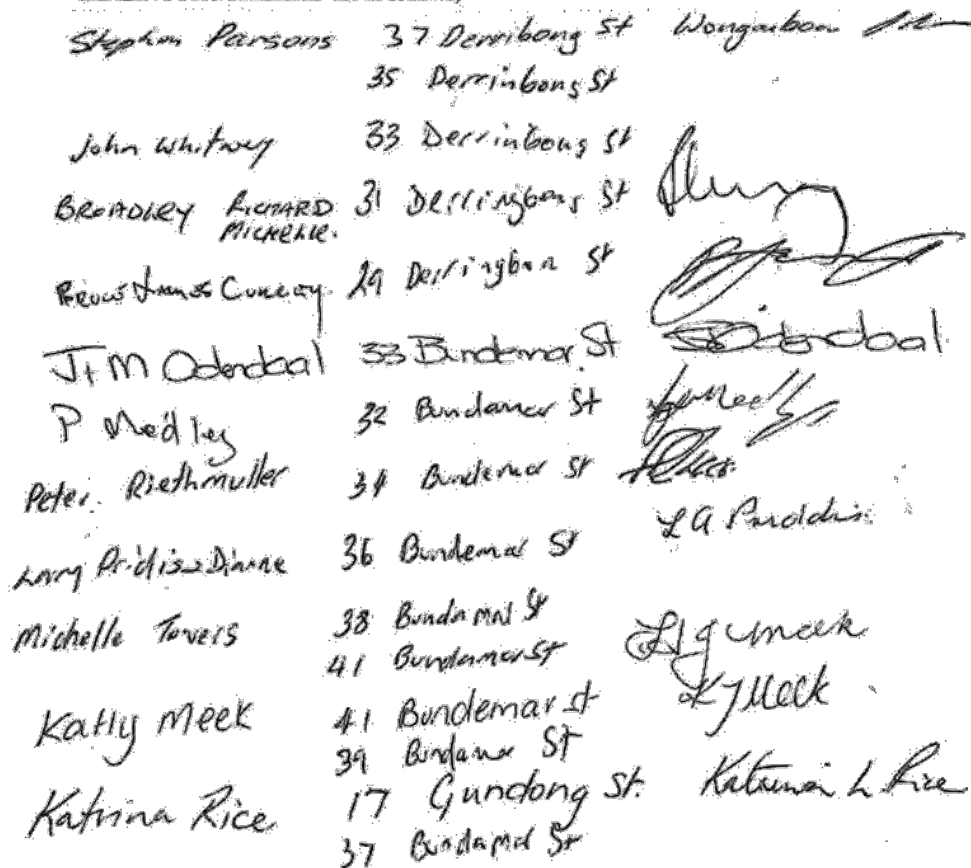 Stephen Parsons 37 Derribong St Wongarbon
35 Derrinbong St
John Whitney 33 Derrinbong St
BROADLEY RICHARD MICHELLE. 31 Derringbong St
James Conroy 29 Derringbon St
J + M Odendaal 33 Bundemar St Odendaal
P Medley 32 Bundamar St
Peter Riethmuller 34 Bundemar St
Larry Dianne 36 Bundemar St L A
Michelle Towers 38 Bundamar St
41 Bundamar St
Kathy Meek 41 Bundemar St K J Meek
39 Bundamar St
Katrina Rice 17 Gundong St. Katrina L Rice
37 Bundamar St